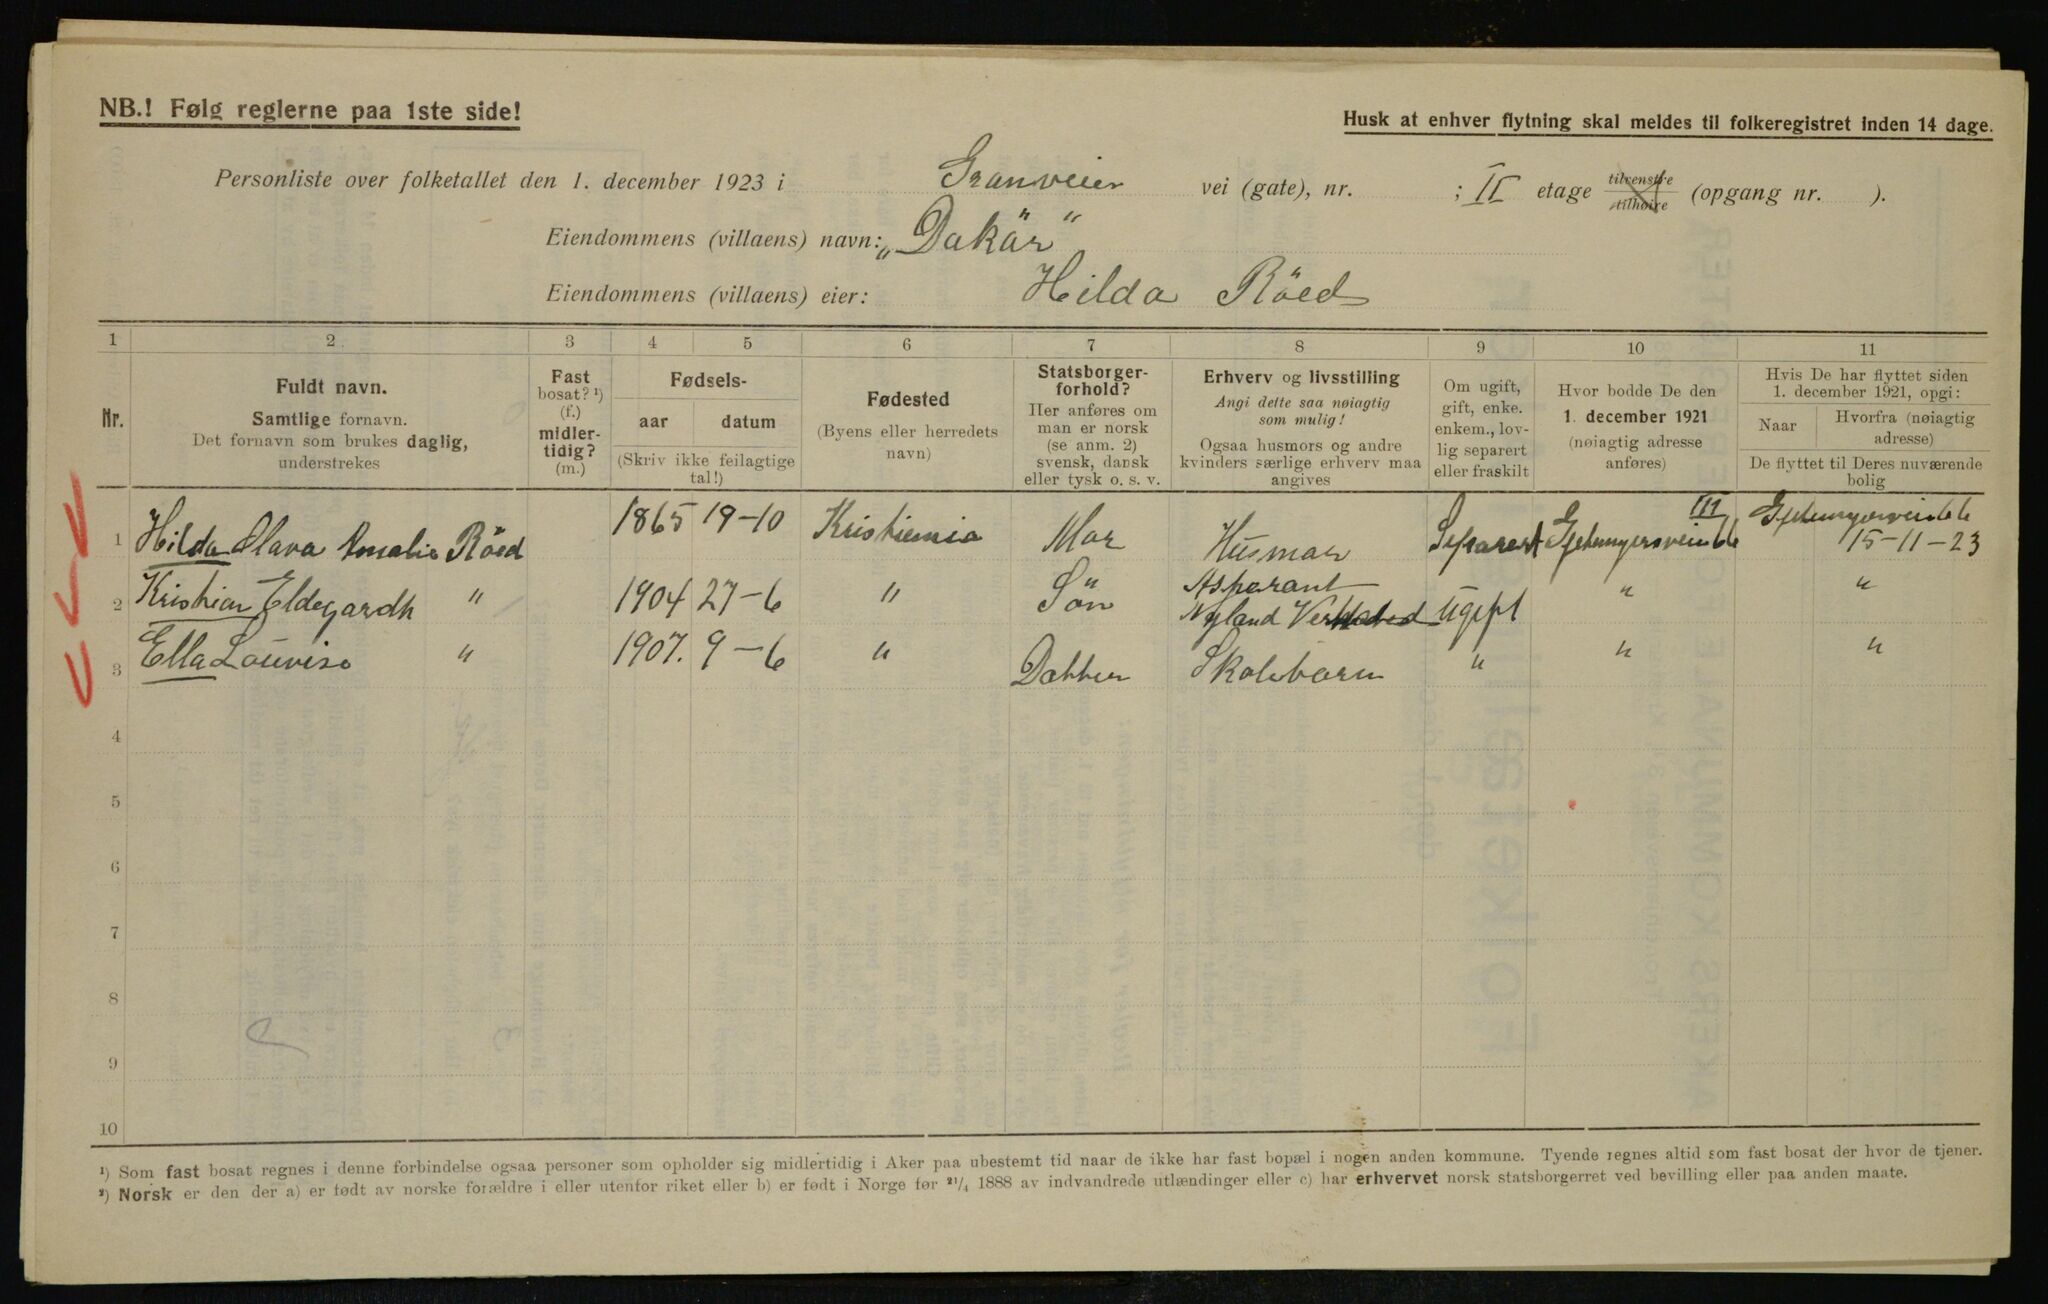 NB.! Følg reglerne paa 1ste side!
Husk at enhver flytning skal meldes til folkeregistret inden 14 dage.
Personliste over folketallet den 1. december 1923 i Granveien vei (gate), nr. ; II etage tilvenstre tilhøire (opgang nr. ).
Eiendommens (villaens) navn: „Dakär“
Eiendommens (villaens) eier: Hilda Röed
1 2 3 4 5 6 7 8 9 10 11
Nr.
Fuldt navn.
Samtlige fornavn.
Det fornavn som brukes daglig,
understrekes
Fast
bosat? ¹)
(f.)
midler-
tidig?
(m.)
Fødsels-
aar datum
(Skriv ikke feilagtige
tal!)
Fødested
(Byens eller herredets
navn)
Statsborger-
forhold?
Her anføres om
man er norsk
(se anm. 2)
svensk, dansk
eller tysk o. s. v.
Erhverv og livsstilling
Angi dette saa nøiagtig
som mulig!
Ogsaa husmors og andre
kvinders særlige erhverv maa
angives
Om ugift,
gift, enke.
enkem., lov-
lig separert
eller fraskilt
Hvor bodde De den
1. december 1921
(nøiagtig adresse
anføres)
Hvis De har flyttet siden
1. december 1921, opgi:
Naar
Hvorfra (nøiagtig
adresse)
De flyttet til Deres nuværende
bolig
1 Hilda Olava Amalie Röed 1865 19-10 Kristiania Mor Husmor Separert III
15-11-23
2 Kristian Eldegardh " 1904 27-6 " Sön Aspirant
Nyland Verksted Ugift " "
3 Ella Lovise " 1907. 9-6 " Datter Skolebarn " " "
4
5
6
7
8
9
10
¹) Som fast bosat regnes i denne forbindelse ogsaa personer som opholder sig midlertidig i Aker paa ubestemt tid naar de ikke har fast bopæl i nogen anden kommune. Tyende regnes altid som fast bosat der hvor de tjener.
²) Norsk er den der a) er født av norske forældre i eller utenfor riket eller b) er født i Norge før ²¹/₄ 1888 av indvandrede utlændinger eller c) har erhvervet norsk statsborgerret ved bevilling eller paa anden maate.